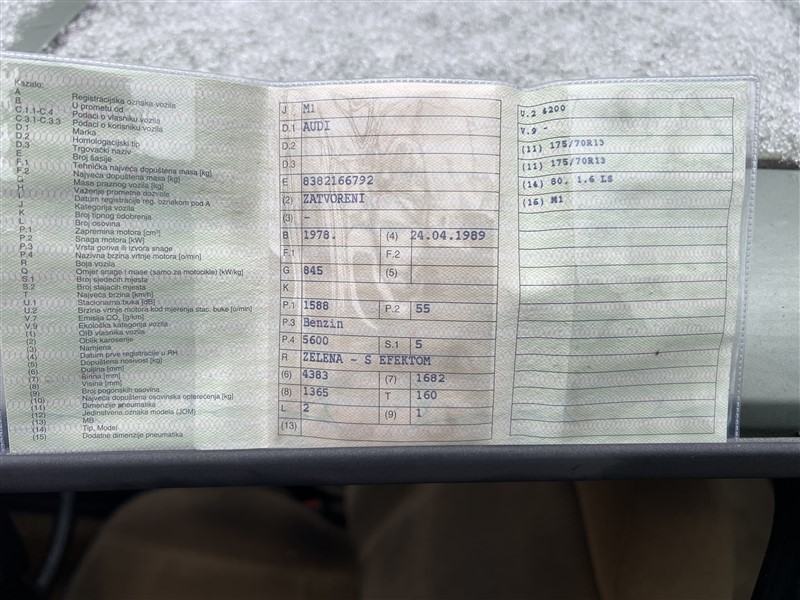 Kazalo:
A Registracijska oznaka vozila
B U prometu od
C.1.1-C.4 Podaci o vlasniku vozila
C.3.1-C.3.3 Podaci o korisniku vozila
D.1 Marka
D.2 Homologacijski tip
D.3 Trgovački naziv
E Broj šasije
F.1 Tehnička najveća dopuštena masa [kg]
F.2 Najveća dopuštena masa [kg]
G Masa praznog vozila [kg]
H Važenje prometne dozvole
Datum registracije reg. oznakom pod A
J Kategorija vozila
K Broj tipnog odobrenja
L Broj osovina
P.1 Zapremina motora [cm³]
P.2 Snaga motora [kW]
P.3 Vrsta goriva ili izvora snage
P.4 Nazivna brzina vrtnje motora [o/min]
R Boja vozila
Q Omjer snage i mase (samo za motocikle) [kW/kg]
S.1 Broj sjedećih mjesta
S.2 Broj stajaćih mjesta
T Najveća brzina [km/h]
U.1 Stacionarna buka [dB]
U.2 Brzina vrtnje motora kod mjerenja stac. buke [o/min]
V.7 Emisija CO₂ [g/km]
V.9 Ekološka kategorija vozila
(1) OIB vlasnika vozila
(2) Oblik karoserije
(3) Namjena
(4) Datum prve registracije u RH
(5) Dopuštena nosivost [kg]
(6) Duljina [mm]
(7) Širina [mm]
(8) Visina [mm]
(9) Broj pogonskih osovina
(10) Najveća dopuštena osovinska opterećenja [kg]
(11) Dimenzije pneumatika
(12) Jedinstvena oznaka modela (JOM)
(13) MB
(14) Tip, Model
(15) Dodatne dimenzije pneumatika
J M1
D.1 AUDI
D.2
D.3
E 8382166792
(2) ZATVORENI
(3) -
B 1978. (4) 24.04.1989
F.1 F.2
G 845 (5)
K
P.1 1588 P.2 55
P.3 Benzin
P.4 5600 S.1 5
R ZELENA - S EFEKTOM
(6) 4383 (7) 1682
(8) 1365 T 160
L 2 (9) 1
(13)
U.2 4200
V.9 -
(11) 175/70R13
(11) 175/70R13
(14) 80. 1.6 LS
(16) M1